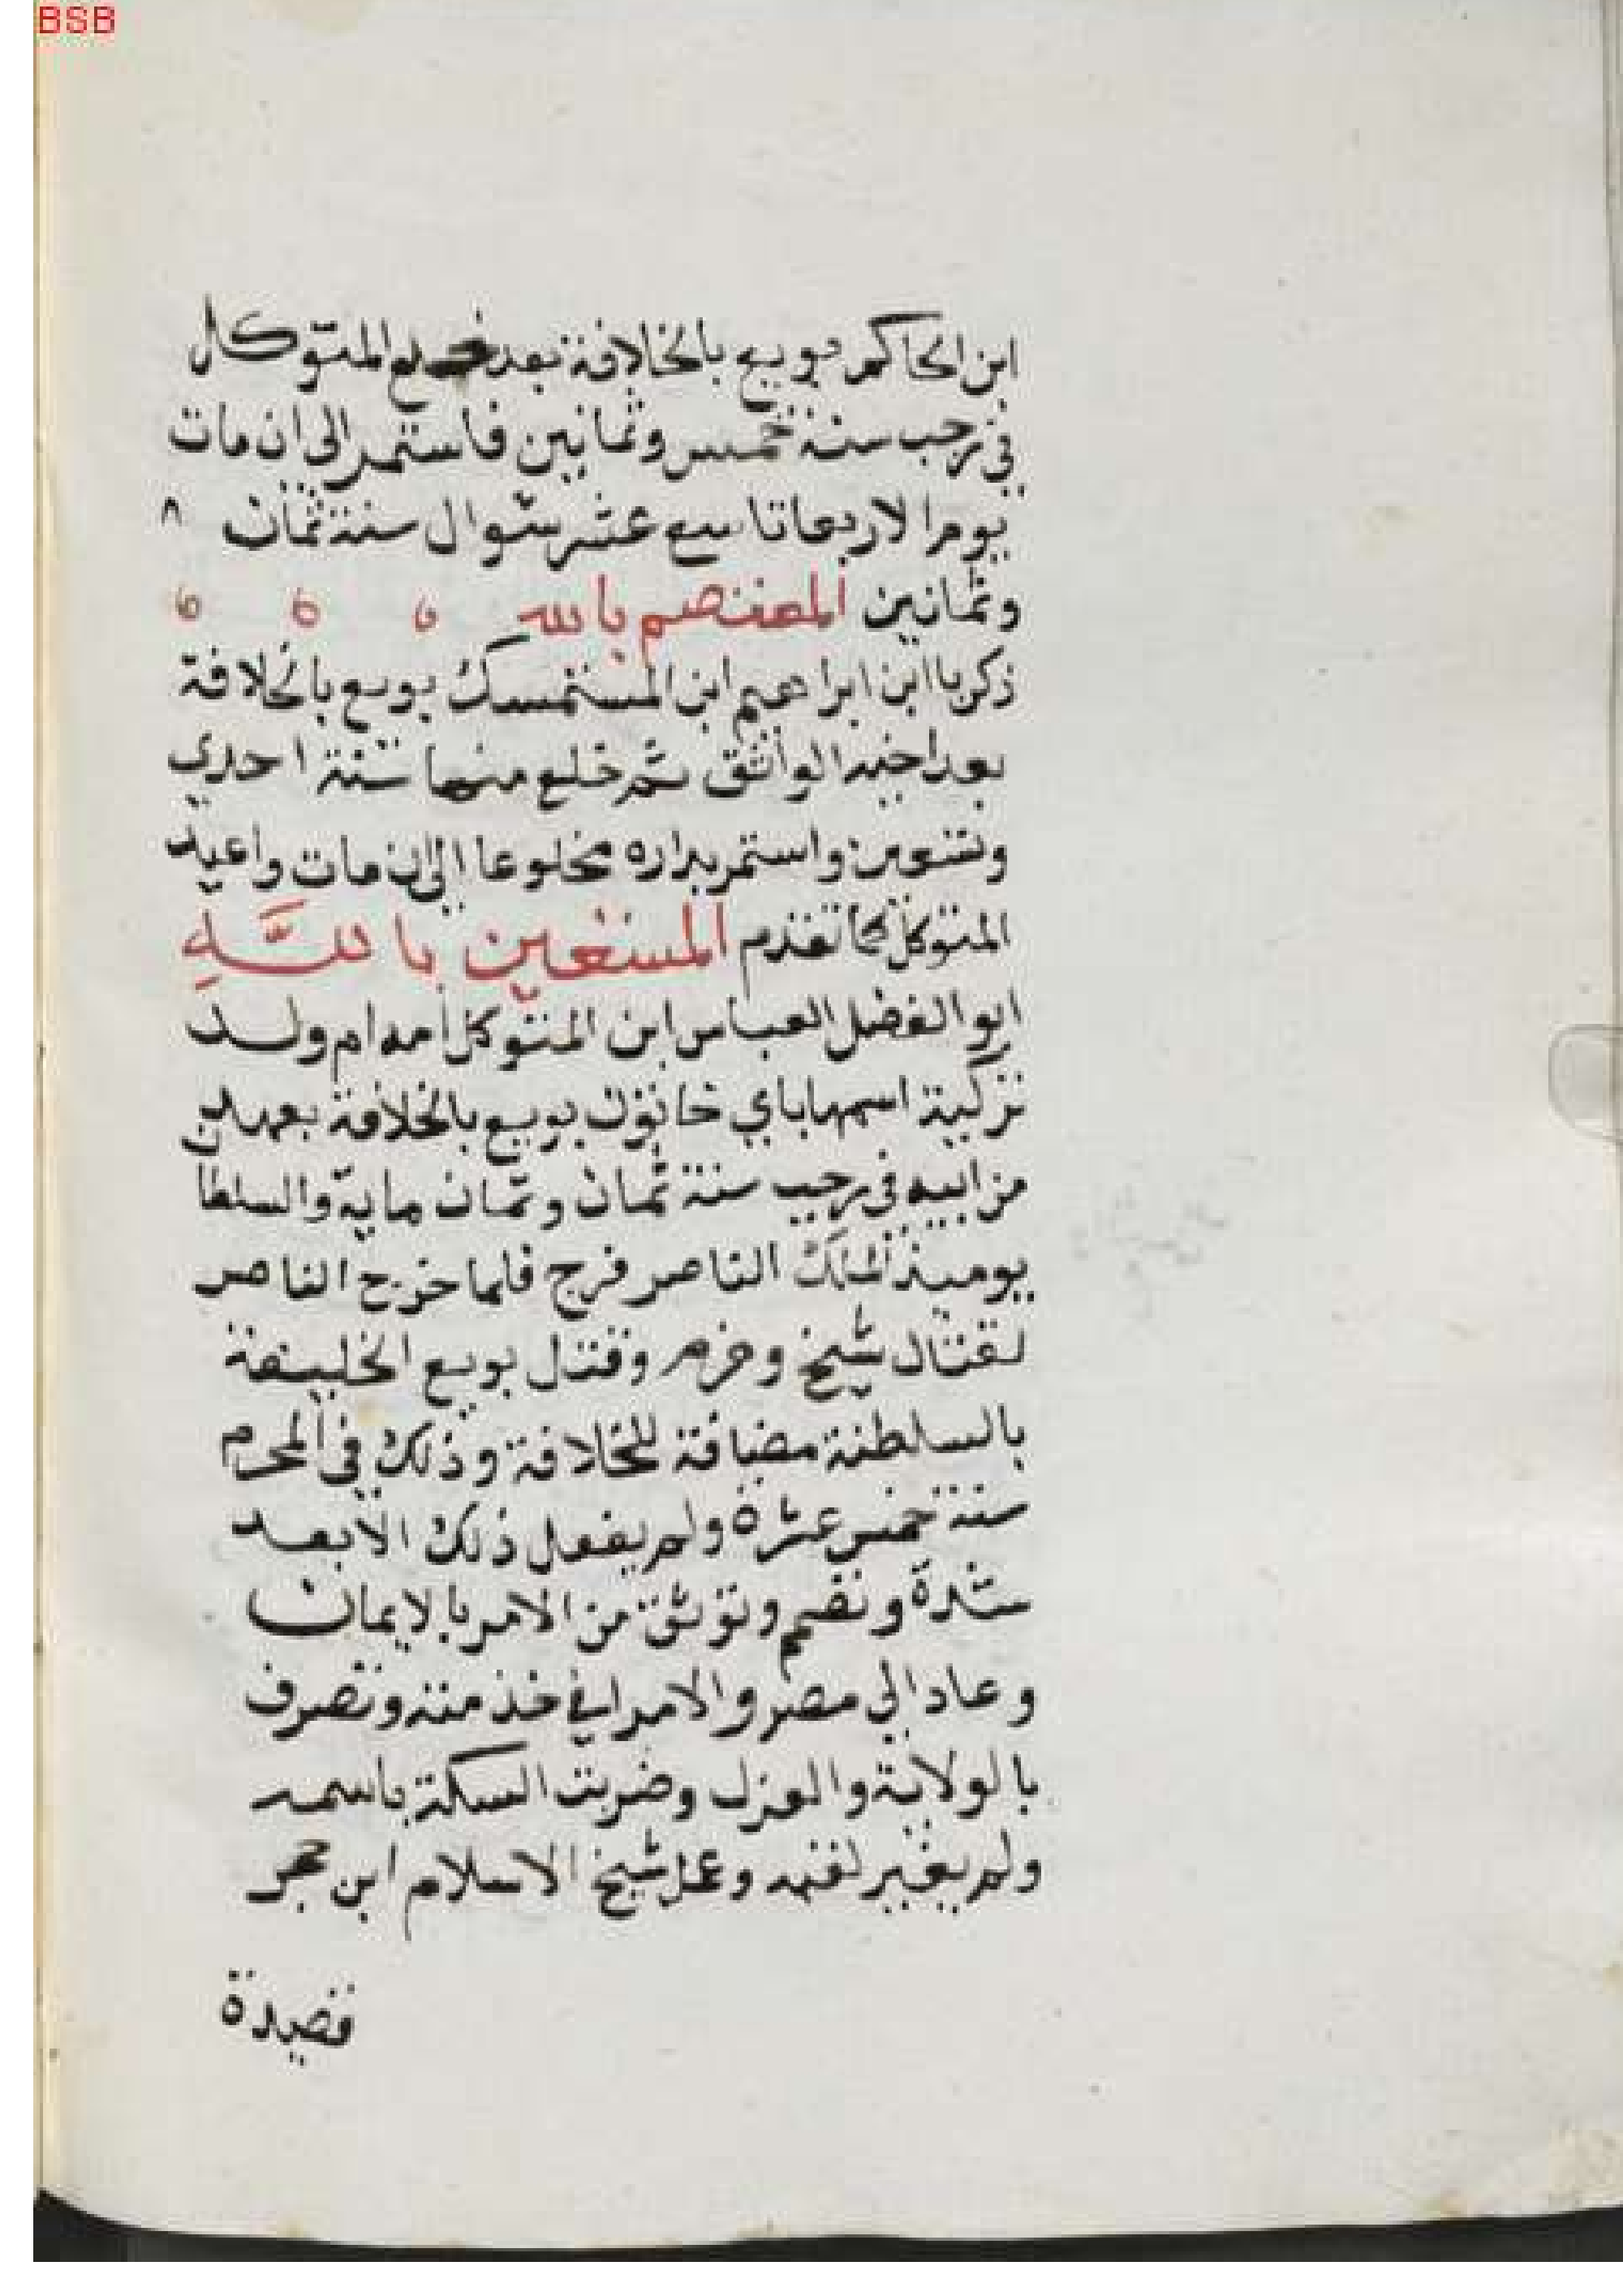 BSB
ابن الحاكم بويع بالخلافة بعد خلع المتوكل
في رجب سنة خمس وثمانين فاستمر الى ان مات
يوم الاربعا تاسع عشر شوال سنة ثمان ٨
وثمانين المعتصم بالله
زكريا ابن ابراهيم ابن المستمسك بويع بالخلافة
بعد اخيه الواثق ثم خلع منها سنة احدي
وتسعين واستمر بداره مخلوعا الى ان مات واعيد
المتوكل كما تقدم المستعين بالله
ابو الفضل العباس ابن المتوكل امه ام ولد
تركية اسمها باي خاتون بويع بالخلافة بعهد
من ابيه في رجب سنة ثمان وثمان ماية والسلطا
يوميذ الملك الناصر فرج فلما خرج الناصر
لقتال شيخ وهزم وقتل بويع الخليفة
بالسلطنة مضافة للخلافة وذلك في المحرم
سنة خمس عشرة ولم يفعل ذلك الا بعد
شدة وتصميم وتوثق من الامر بالايمان
وعاد الي مصر والامرا في خدمته وتصرف
بالولاية والعزل وضربت السكة باسمه
ولم يغير لقبه وعمل شيخ الاسلام ابن حجر
قصيدة